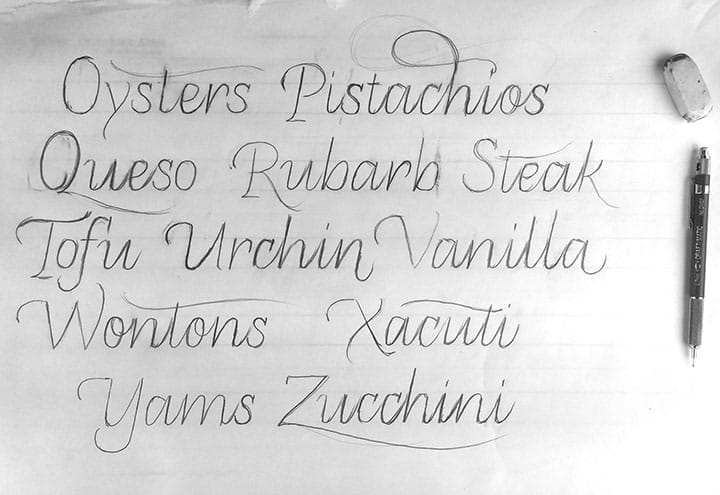 Oysters Pistachios
Queso Rubarb Steak
Tofu Urchin Vanilla
Wontons Xacuti
Yams Zucchini